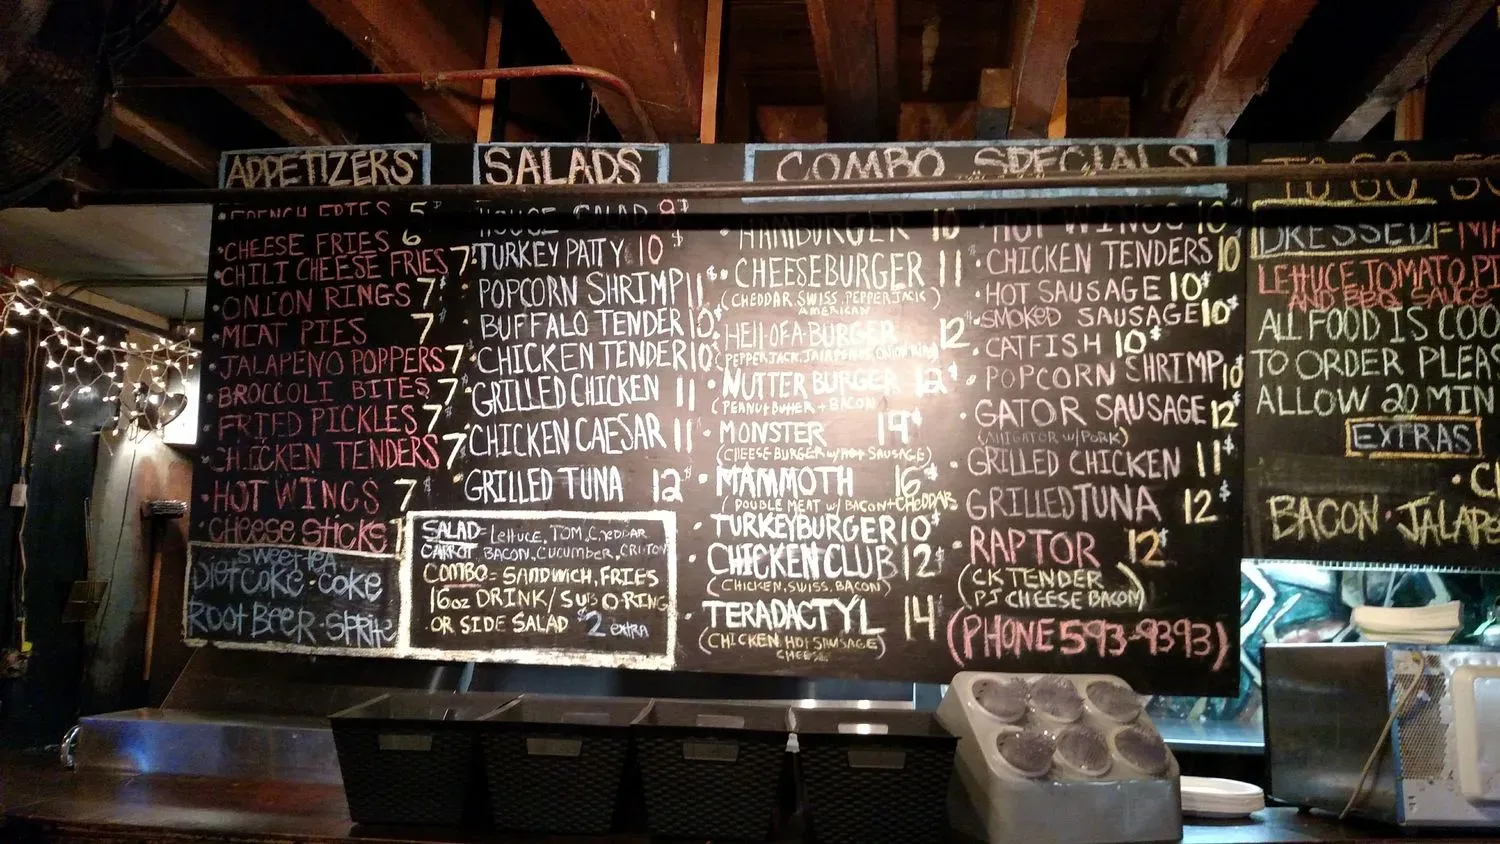 APPETIZERS
FRENCH FRIES 5$
• CHEESE FRIES 6
• CHILI CHEESE FRIES 7$
• ONION RINGS 7$
• MEAT PIES 7
• JALAPENO POPPERS 7
• BROCCOLI BITES 7$
• FRIED PICKLES 7$
• CHICKEN TENDERS 7$
• HOT WINGS 7$
• CHEESE STICKS
SWEET TEA
DIET COKE • COKE
ROOT BEER • SPRITE
SALADS
HOUSE SALAD 8$
TURKEY PATTY 10$
POPCORN SHRIMP 11$
BUFFALO TENDER 10$
CHICKEN TENDER 10$
GRILLED CHICKEN 11
CHICKEN CAESAR 11
GRILLED TUNA 12$
SALAD = LETTUCE, TOM, CHEDDAR
CARROT, BACON, CUCUMBER,
COMBO = SANDWICH, FRIES
16oz DRINK / SUB O RING
OR SIDE SALAD $2 EXTRA
COMBO SPECIALS
• HAMBURGER 10
• CHEESEBURGER 11
(CHEDDAR, SWISS, PEPPERJACK)
AMERICAN
HELL-OF-A-BURGER 12$
(PEPPERJACK, JALAPENOS, ONION RING)
• NUTTER BURGER 12$
(PEANUT BUTTER + BACON
• MONSTER 14$
(CHEESEBURGER w/ HOT SAUSAGE)
• MAMMOTH 16$
(DOUBLE MEAT w/ BACON + CHEDDAR
• TURKEYBURGER 10$
CHICKEN CLUB 12$
(CHICKEN, SWISS, BACON)
• TERADACTYL 14
(CHICKEN HOT SAUSAGE)
CHEESE
• HOT WINGS 10$
• CHICKEN TENDERS 10
• HOT SAUSAGE 10$
• SMOKED SAUSAGE 10$
• CATFISH 10$
• POPCORN SHRIMP 10$
GATOR SAUSAGE 12$
(ALLIGATOR w/ PORK)
• GRILLED CHICKEN 11$
• GRILLED TUNA 12$
• RAPTOR 12$
(CK TENDER
PJ CHEESE BACON)
(PHONE 593-9393)
TO GO
DRESSED =
LETTUCE, TOMATO,
AND BBQ SAUCE
ALL FOOD IS
TO ORDER
ALLOW 20 MIN
EXTRAS
BACON •